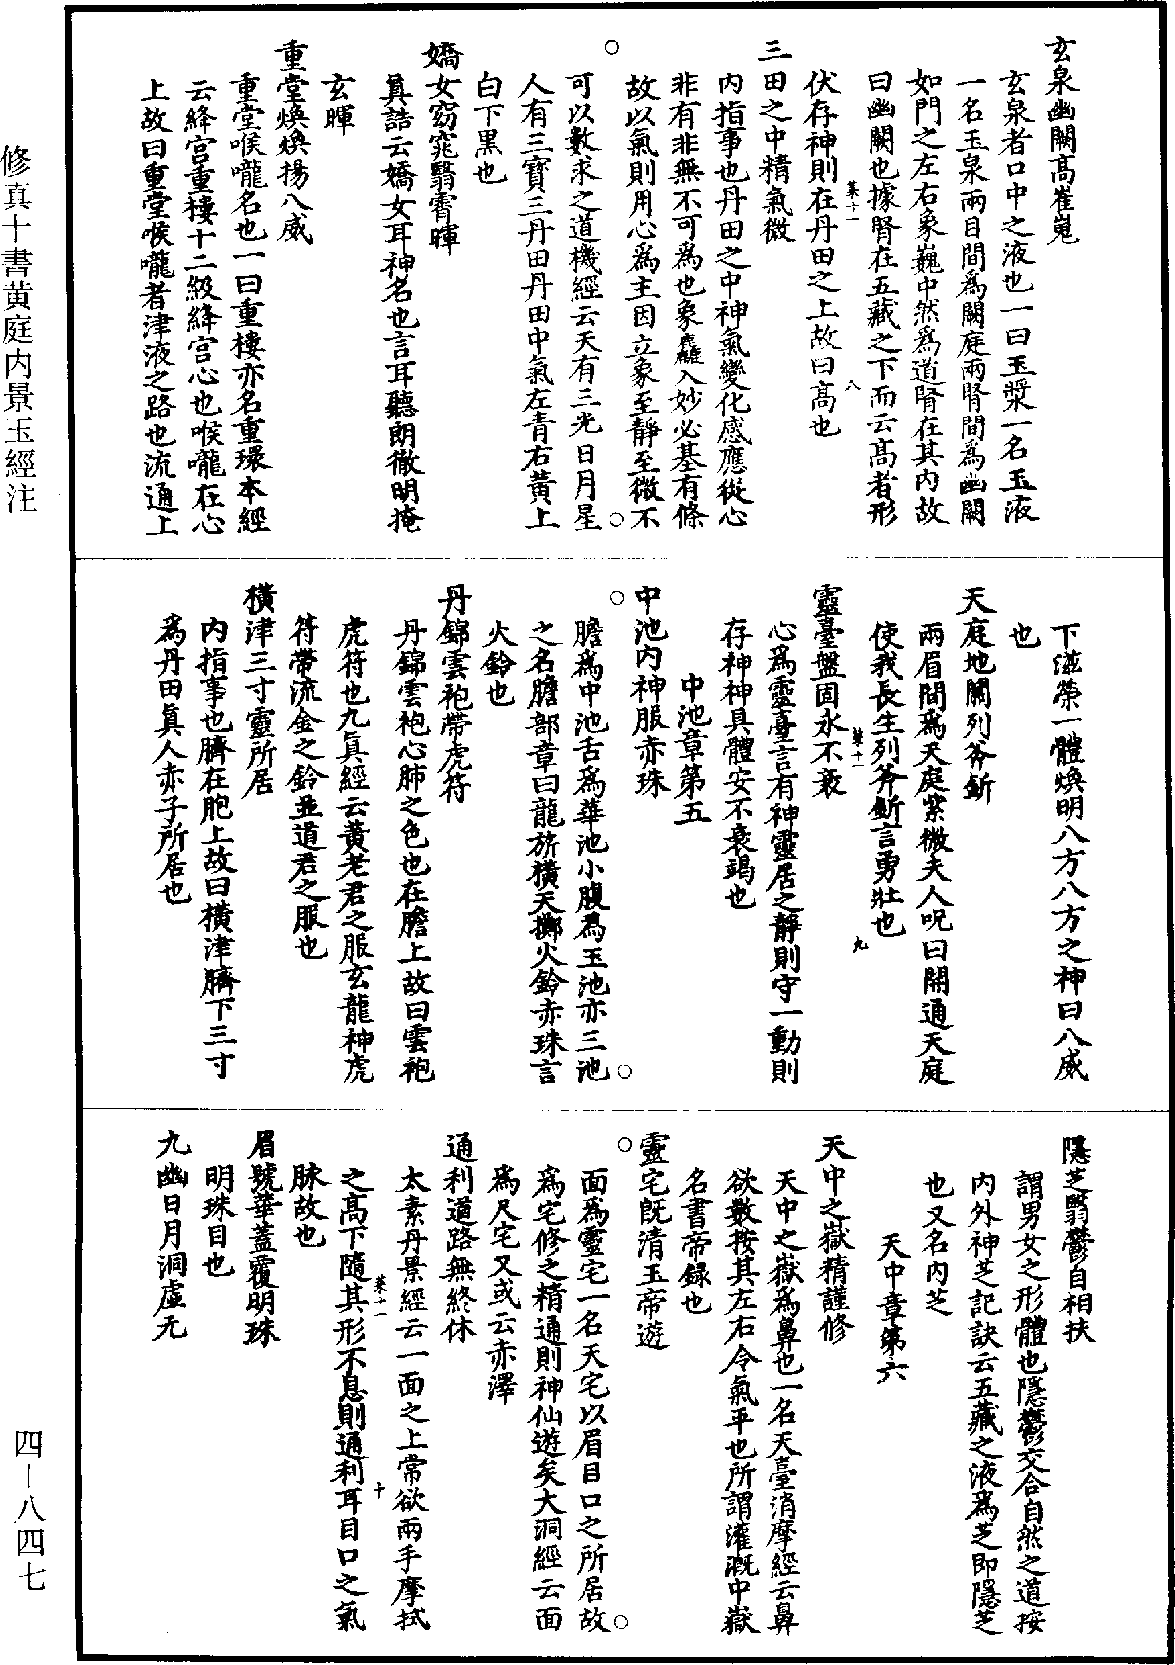 玄泉幽關高崔嵬
玄泉者口中之液也一曰玉漿一名玉液
一名玉泉兩目間爲闕庭兩腎間爲幽關
如門之左右象巍中然爲道腎在其內故
曰幽關也據腎在五藏之下而云高者形
菜十一 八
伏存神則在丹田之上故曰高也
三田之中精氣微
內指事也丹田之中神氣變化感應從心
非有非無不可爲也象麤入妙必基有條
故以氣則用心爲主因立象至靜至微不
可以數求之道機經云天有三光日月星
人有三寶三丹田丹田中氣左青右黃上
白下黑也
嬌女窈窕翳霄暉
眞誥云嬌女耳神名也言耳聽朗徹明掩
玄暉
重堂煥煥揚八威
重堂喉嚨名也一曰重樓亦名重環本經
云絳宮重樓十二級絳宮心也喉嚨在心
上故曰重堂喉嚨者津液之路也流通上
下滋榮一體煥明八方八方之神曰八威
也
天庭地關列斧斤
兩眉間爲天庭紫微夫人呪曰開通天庭
使我長生列斧斤言勇壯也
菜十一 九
靈臺盤固永不衰
心爲靈臺言有神靈居之靜則守一動則
存神神具體安不衰竭也
中池章第五
中池內神服赤珠
膽爲中池舌爲華池小腹爲玉池亦三池
之名膽部章曰龍旂橫天擲火鈴赤珠言
火鈴也
丹錦雲袍帶虎符
丹錦雲袍心肺之色也在膽上故曰雲袍
虎符也九眞經云黃老君之服玄龍神虎
符帶流金之鈴並道君之服也
橫津三寸靈所居
內指事也臍在胞上故曰橫津臍下三寸
爲丹田眞人赤子所居也
隱芝翳鬱自相扶
謂男女之形體也隱鬱交合自然之道按
內外神芝記訣云五藏之液爲芝即隱芝
也又名內芝
天中章第六
天中之嶽精謹修
天中之嶽爲鼻也一名天臺消摩經云鼻
欲數按其左右令氣平也所謂灌溉中嶽
名書帝錄也
靈宅既清玉帝遊
面爲靈宅一名天宅以眉目口之所居故
爲宅修之精通則神仙遊矣大洞經云面
爲尺宅又或云赤澤
通利道路無終休
太素丹景經云一面之上常欲兩手摩拭
菜十一 十
之高下隨其形不息則通利耳目口之氣
脉故也
眉號華蓋覆明珠
明珠目也
九幽日月洞虛无
修真十書黄庭内景玉經注
四—八四七